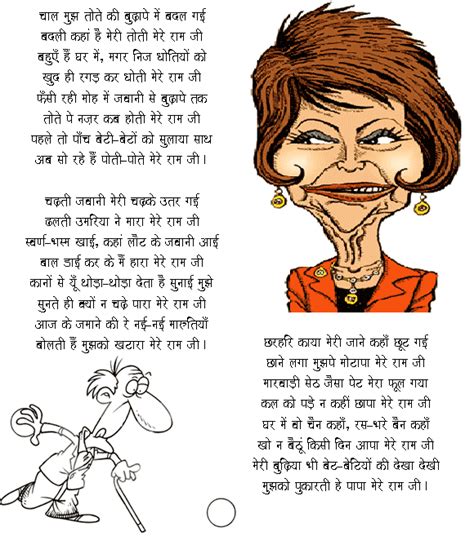 चाल मुझ तोते की बुढ़ापे में बदल गई
बदली कहां है मेरी तोती मेरे राम जी
बहुएँ हैं घर में, मगर निज धोतियों को
खुद ही रगड़ कर धोती मेरे राम जी
फँसी रही मोह में जबानी से बुढ़ापे तक
तोते पे नज़र कब होती मेरे राम जी
पहले तो पाँच बेटी-बेटों को सुलाया साथ
अब सो रहे हैं पोती-पोते मेरे राम जी।
चढ़ती जबानी मेरी चढ़के उतर गई
ढलती उमरिया ने मारा मेरे राम जी
स्वर्ण-भस्म खाई, कहां लौट के जबानी आई
बाल डाई कर के मैं हारा मेरे राम जी
कानों से यूँ थोड़ा-थोड़ा देता है सुनाई मुझे
सुनते ही क्यों न चढ़े पारा मेरे राम जी
आज के जमाने की रे नई-नई मारुतियाँ
बोलती हैं मुझको खटारा मेरे राम जी।
छरहरि काया मेरी जाने कहाँ छूट गई
छाने लगा मुझपे मोटापा मेरे राम जी
मारबाड़ी सेठ जैसा पेट मेरा फूल गया
कल को पड़े न कहीं छापा मेरे राम जी
घर में बो चैन कहाँ, रस-भरे बैन कहाँ
खो न बैठूं किसी दिन आपा मेरे राम जी
मेरी बुढ़िया भी बेट-बेटियों की देखा देखी
मुझको पुकारती हे पापा मेरे राम जी।